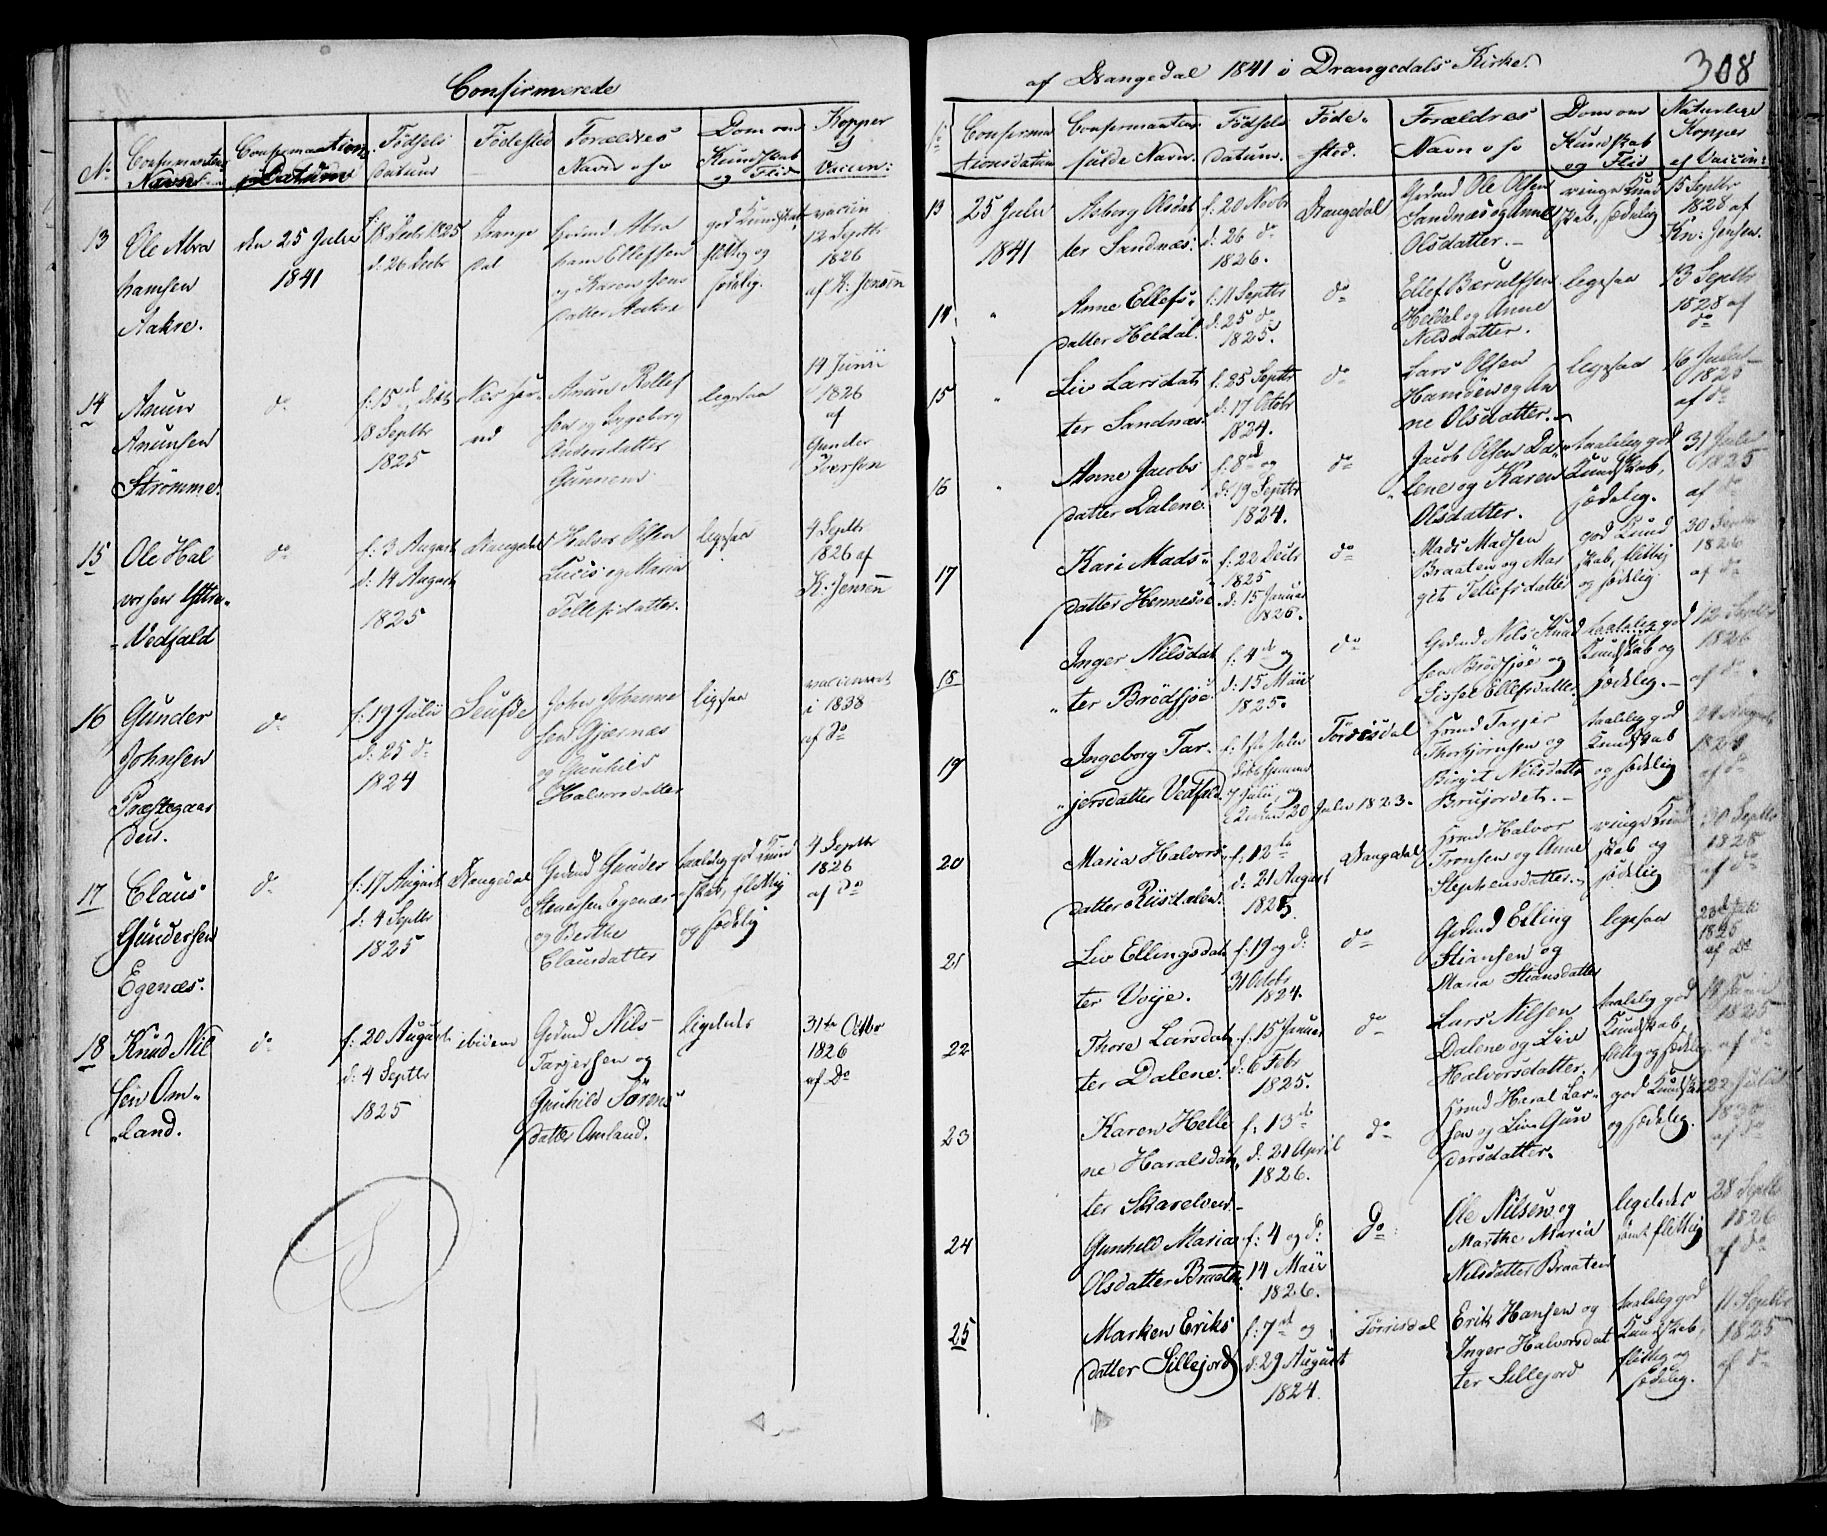 Confirmerede
No
Confirmantens
Navn
Confirmations
Datum
Fødsels
datum
Fødested
Forældres
Navn osv
Dom om
Kundskab
og Flid
Kopper
Vaccin:
13
Ole Abra
hamsen
Aakre.
den 25 Julii
1841
f: 18 Decbr 1825
d: 26 Decbr
Drange
dal
Grmd Abra
ham Ellefsen
og Karen Jens
datter Aakre
god Kundskab,
flittig og
sædelig.
vaccin
12 Septbr
1826
af K: Jensen
14
Anun
Anunsen
Strømme.
do
f: 15de
18 Septbr
1825
Anun Rollef
sen og Ingeborg
Andersdatter
ligesaa
14 Junii
1826
af
Gunder
Iversen
15
Ole Hal
vorsen Yttre
Vedfald
do
f: 3 August
d: 14 August
1825
Drangedal
Halvor Olsen
og Maria
Tellefsdatter.
ligesaa
4 Septbr
1826 af
K: Jensen
16
Gunder
Johnsen
Præstegaar
den.
do
f: 19 Julii
d: 25 do
1824
John Johanne
sen Gjernæs
og Gunhild
Halvorsdatter
ligesaa
vaccineret
i 1838
af do
17
Claus
Gundersen
Egenæs.
do
f: 17 August
d: 4 Septbr
1825
Drangedal
Grmd Gunder
Stenersen Egenæs
og Berthe
Clausdatter
taalelig god Kund
skab, flittig
og sædelig
4 Septbr
1826
af do
18
Knud Nil
sen Om
land.
do
f: 20 August
d: 4 Septbr
1825
ibidem
Grmd Nils
Tarjersen og
Gunhild Sørens
datter Omland.
ligeledes
31te Octbr
1826
af Do
af Drangedal 1841 i Drangedals Kirke.
308
Confirma
tionsdatum
Confirmantens
fulde Navn.
Fødsels
datum.
Føde-
sted.
Forældres
Navn osv
Dom om
Kundskab
og Flid
Naturlige
Kopper
el Vaccin:
13
25 Julii
1841
Asborg Olsdat
ter Sandnæs.
f: 20 Novbr
d: 26 do
1826.
Drangedal
Grmd Ole Olsen
Sandnæs og Anne
Olsdatter.
ringe Kund
skab, sædelig
15 Septbr
1828 af
Kn: Jensen.
14
Anne Ellefs
datter Heldal.
f: 11 Septbr
d: 25 do
1825.
do
Ellef Bærulfsen
Heldal og Anne
Nilsdatter.
ligesaa
13 Septbr
1828 af
do
15
Liv Larsdat
ter Sandnæs.
f: 25 Septbr
d: 17 Octobr
1824.
do
Lars Olsen
og An
ne Olsdatter.
ligesaa
16 Julii
1825
af do
16
Anne Jacobs
datter Dalene.
f: 8de og
d: 19 Septbr
1824.
do
Jacob Olsen Da
lene og Karen
Olsdatter.
taalelig god
Kundskab,
sædelig.
31 Julii
1825
af do
17
Kari Mads
datter Hennesøe
f: 22 Decbr
1825
d: 15 Januar
1826.
do
Mads Madsen
Braaten og Mar
git Tellefsdatter
god Kund
skab, flittig
og sædelig.
30 Septbr
1826
af do
18
Inger Nilsdat
ter Brødsjøe
f: 4de og
d: 15 Maii
1825.
do
Grmd Nils Knud
sen Brødsjøe og
Sissel Ellefsdatter
taalelig god
Kundskab og
sædelig.
12 Septbr
1826
af do
19
Ingeborg Tar
jersdatter Vedfald.
7 Julii og
20 Julii 1823.
Tørrisdal
Grmd Tarjer
Thorbjørnsen og
Birgit Nilsdatter
Brujordet.
taalelig god
Kundskab
og sædelig
24 August
1824
af do
20
Maria Halvors
datter Riisdalen.
f: 12te
d: 21 August
1825.
Drangedal
Grmd Halvor
Tronsen og Anne
Stephensdatter.
ringe Kund
skab og
sædelig
30 Septbr
1828
af do
21
Liv Ellingsdat
ter Voje.
f: 19 og d:
31 Octbr
1824.
do
Grmd Elling
Stiansen og
Maria Stiansdatter
ligesaa
1825
af do
22
Thore Larsdat
ter Dalene.
f: 15 Januar
d: 6 Febr
1825.
do
Lars Nilsen
Dalene og Liv
Halvorsdatter.
taalelig god
Kundskab,
flittig og sædelig.
14 Junii
1825
af do
23
Karen Helle
ne Haralsdat
ter Skarelven
f: 13de
d: 21 April
1826.
do
Grmd Heral Lar
sen og Liv Gun
dersdatter.
god Kundskab
og sædelig.
22 Julii
1830
af do
24
Gunhild Maria
Olsdatter Braaten.
f: 4 og d:
14 Maii
1826.
Do
Ole Nilsen og
Marthe Maria
Nilsdatter Braaten
ligeledes
samt flittig
28 Septbr
1826
af do
25
Marken Eriks
datter Sillejord
f: 7de og
d: 29 August
1824.
Tørrisdal
Erik Hansen og
Inger Halvorsdat
ter Sillejord
taalelig god
Kundskab,
flittig og
sædelig.
11 Septbr
1825
af do